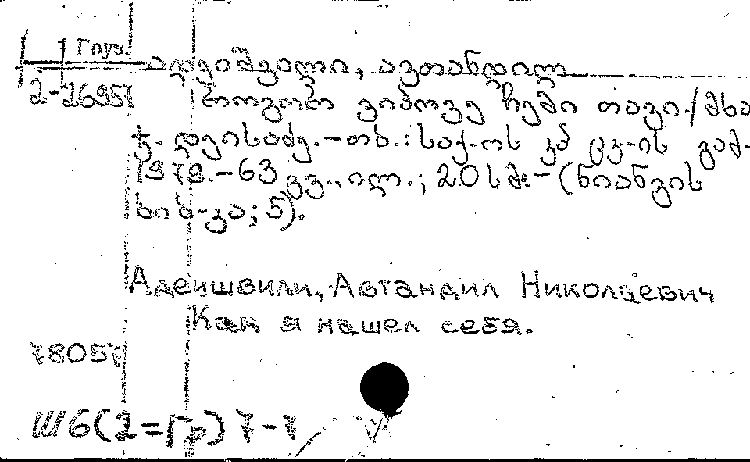 Груз.
2-2695
ადეიშვილი, ავთანდილ
როგორ ვიპოვე ჩემი თავი./მხა
ტ. დეისაძე.-თბ.: საქ-ოს კპ ცკ-ის გამ-
1978.-63 გვ., ილ.; 20 სმ.-(ნიანგის
ბიბ-კა; 5).
Адеишвили, Автандил Николаевич
Как я нашел себя.
78057
Ш6(2=Гр)7-7